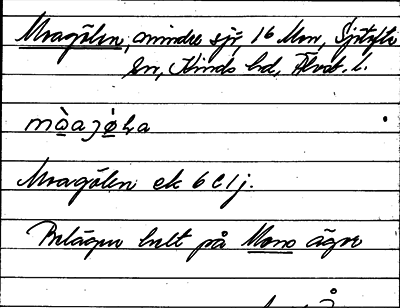 Moagölen, mindre sjö, 16 Mon, Sjötofta
sn, Kinds hd, Älvsb. l.
mòajø̀la
Moagölen ek 6 C 1 j.
Belägen helt på Mons ägor